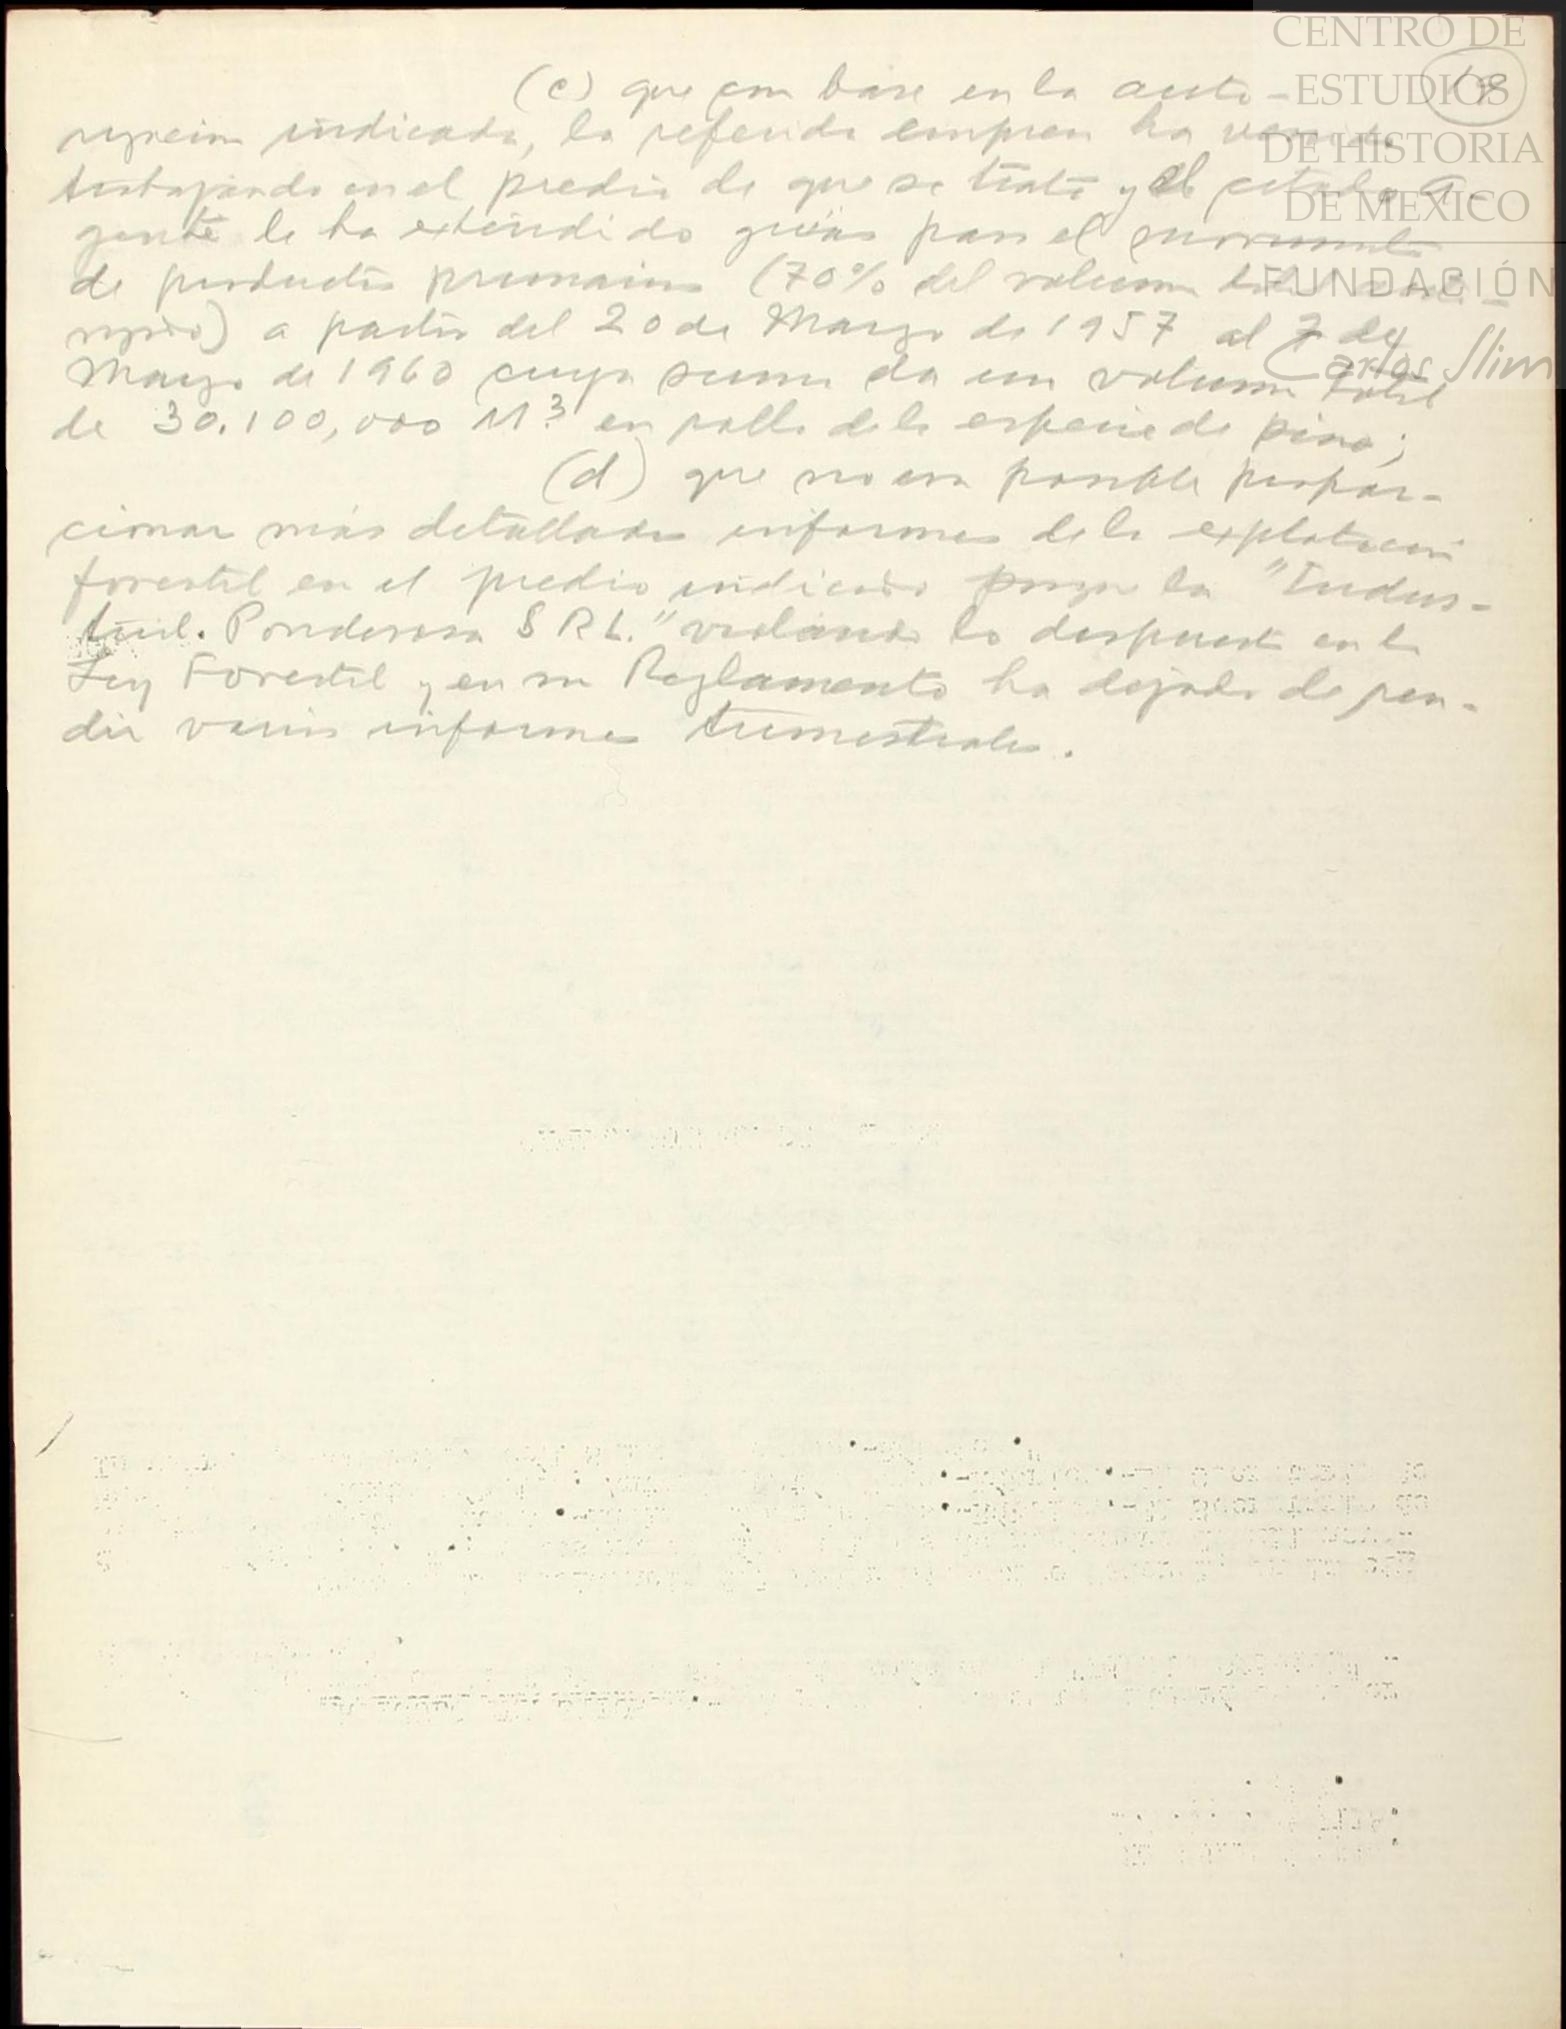 CENTRO DE
ESTUDIOS
DE HISTORIA
DE MEXICO
FUNDACIÓN
Carlos Slim
(c) que con base en la auto-
rización indicada, la referida empresa ha venido
trabajando en el predio de que se trata y el citado A-
gente le ha extendido guías para el movimiento
de productos primarios (70% del volumen total auto-
rizado) a partir del 20 de Marzo de 1957 al 7 de
Marzo de 1960 cuya suma da un volumen total
de 30.100,000 M3 en rollo de la especie de pino;
(d) que no era posible propor-
cionar más detallados informes de la explotación
forestal en el predio indicado porque la "Indus-
trial Ponderosa S R L." violando lo dispuesto en la
Ley Forestal y en su Reglamento ha dejado de ren-
dir varios informes trimestrales.